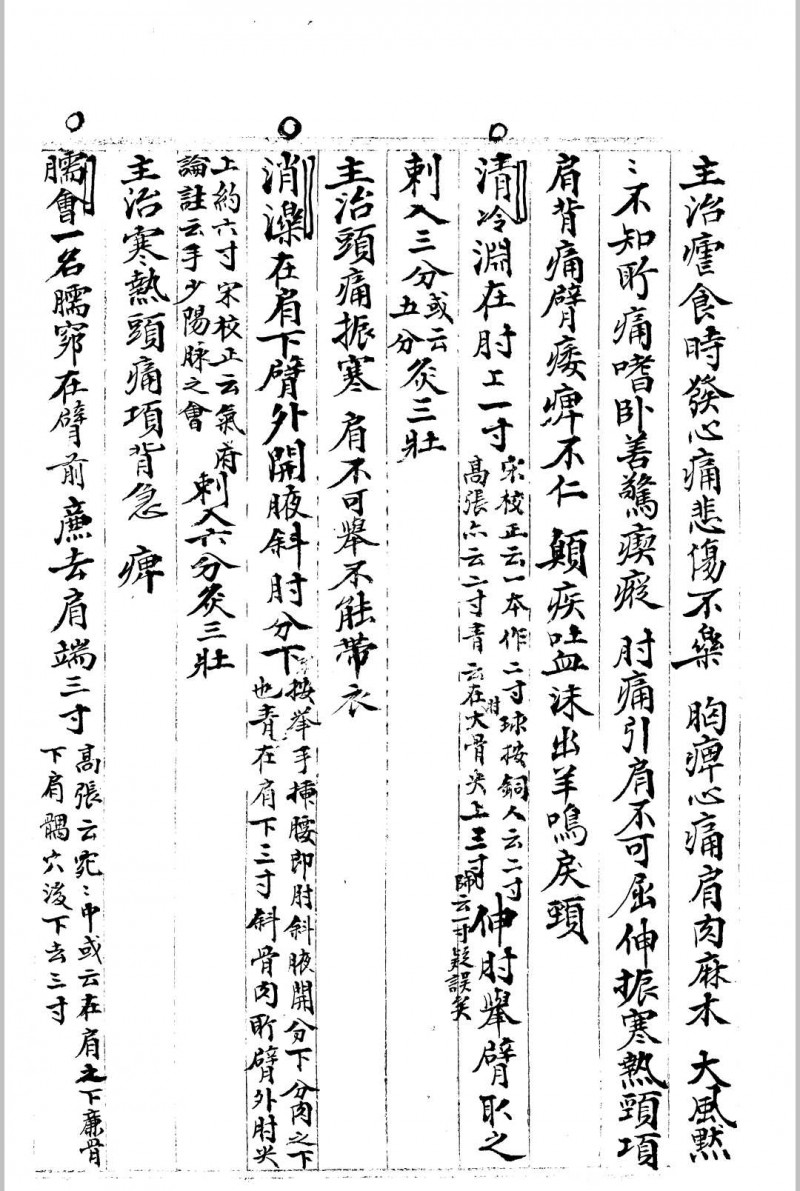 主治瘧食時發心痛悲傷不樂 胸痺心痛肩肉麻木 大風默
〻不知所痛嗜卧善驚瘈瘲 肘痛引肩不可屈伸振寒熱頸項
肩背痛臂痿痺不仁 顛疾吐血沫出羊鳴戾頸
清冷淵在肘上一寸
宋校正云一本作二寸球按銅人云二寸
高張亦云二寸青云在肘大骨尖上三寸
師云一寸疑誤矣
伸肘舉臂取之
刺入三分
或云
五分
灸三壯
主治頭痛振寒 肩不可舉不能帶衣
消濼在肩下臂外開腋斜肘分下
按举手揀腰即肘斜腋開分下分肉之下
也青在肩下三寸斜骨肉所臂外肘尖
上約六寸宋校正云氣府
論註云手少陽脉之會
刺入六分灸三壯
主治寒熱頭痛項背急 痺
臑會一名臑窌在臂前廉去肩端三寸
高張云宛〻中或云在肩之下廉骨
下肩髃穴後下去三寸